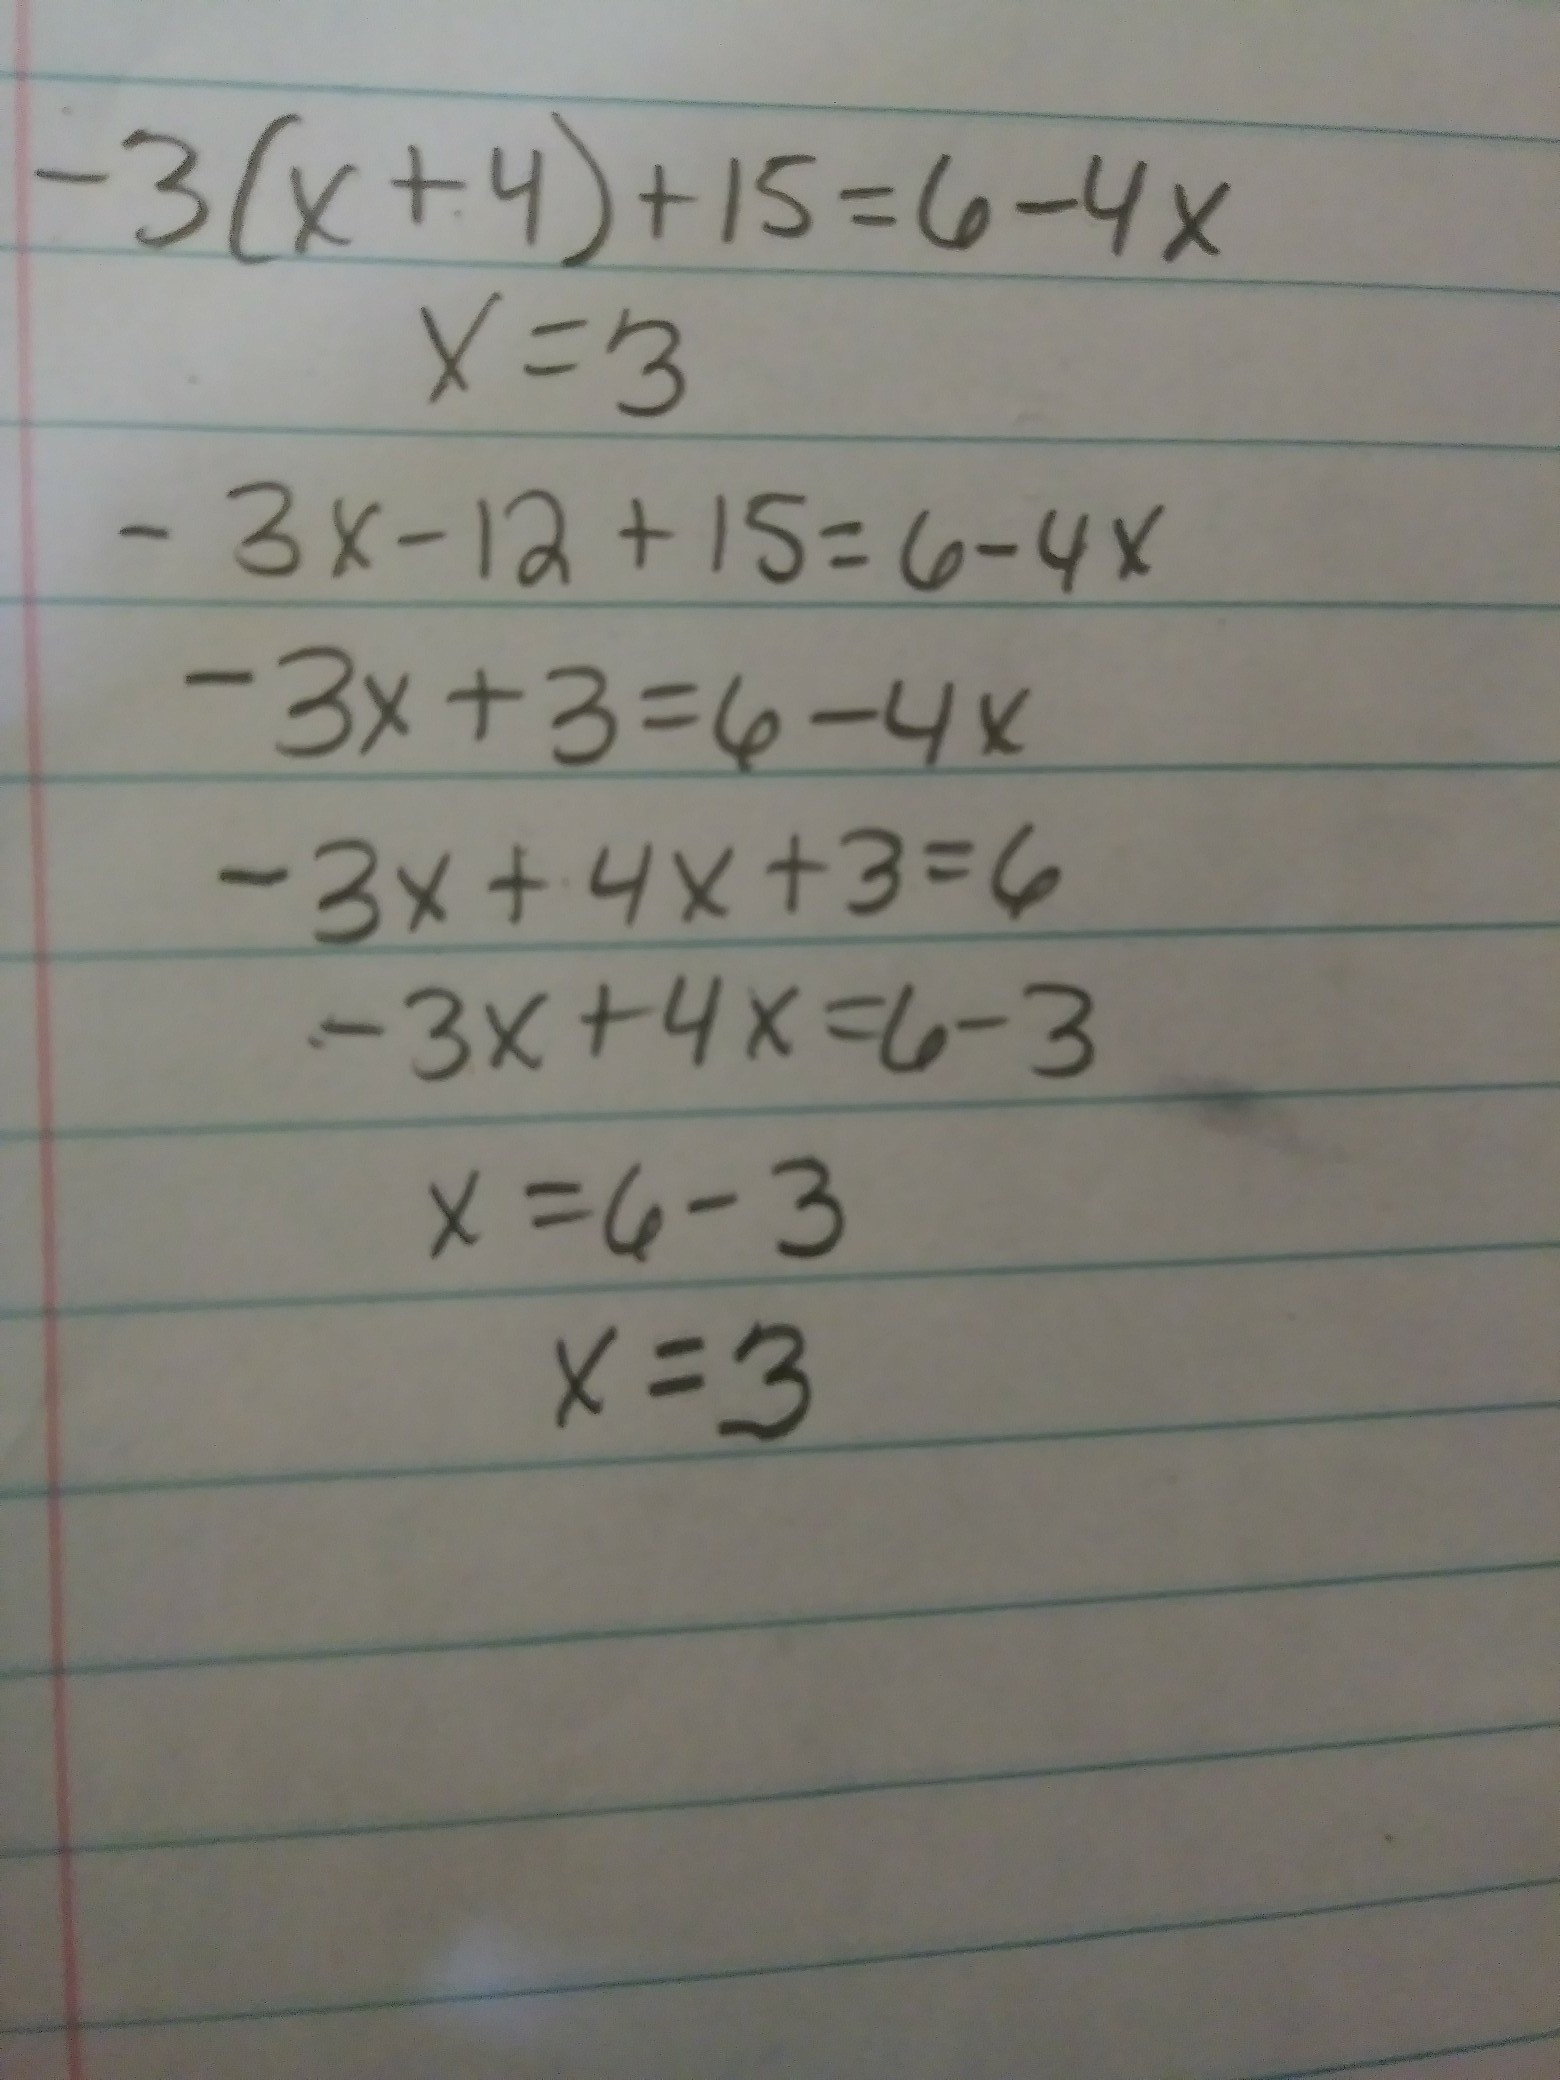 -3(x+4)+15=6-4x
x=3
-3x-12+15=6-4x
-3x+3=6-4x
-3x+4x+3=6
-3x+4x=6-3
x=6-3
x=3